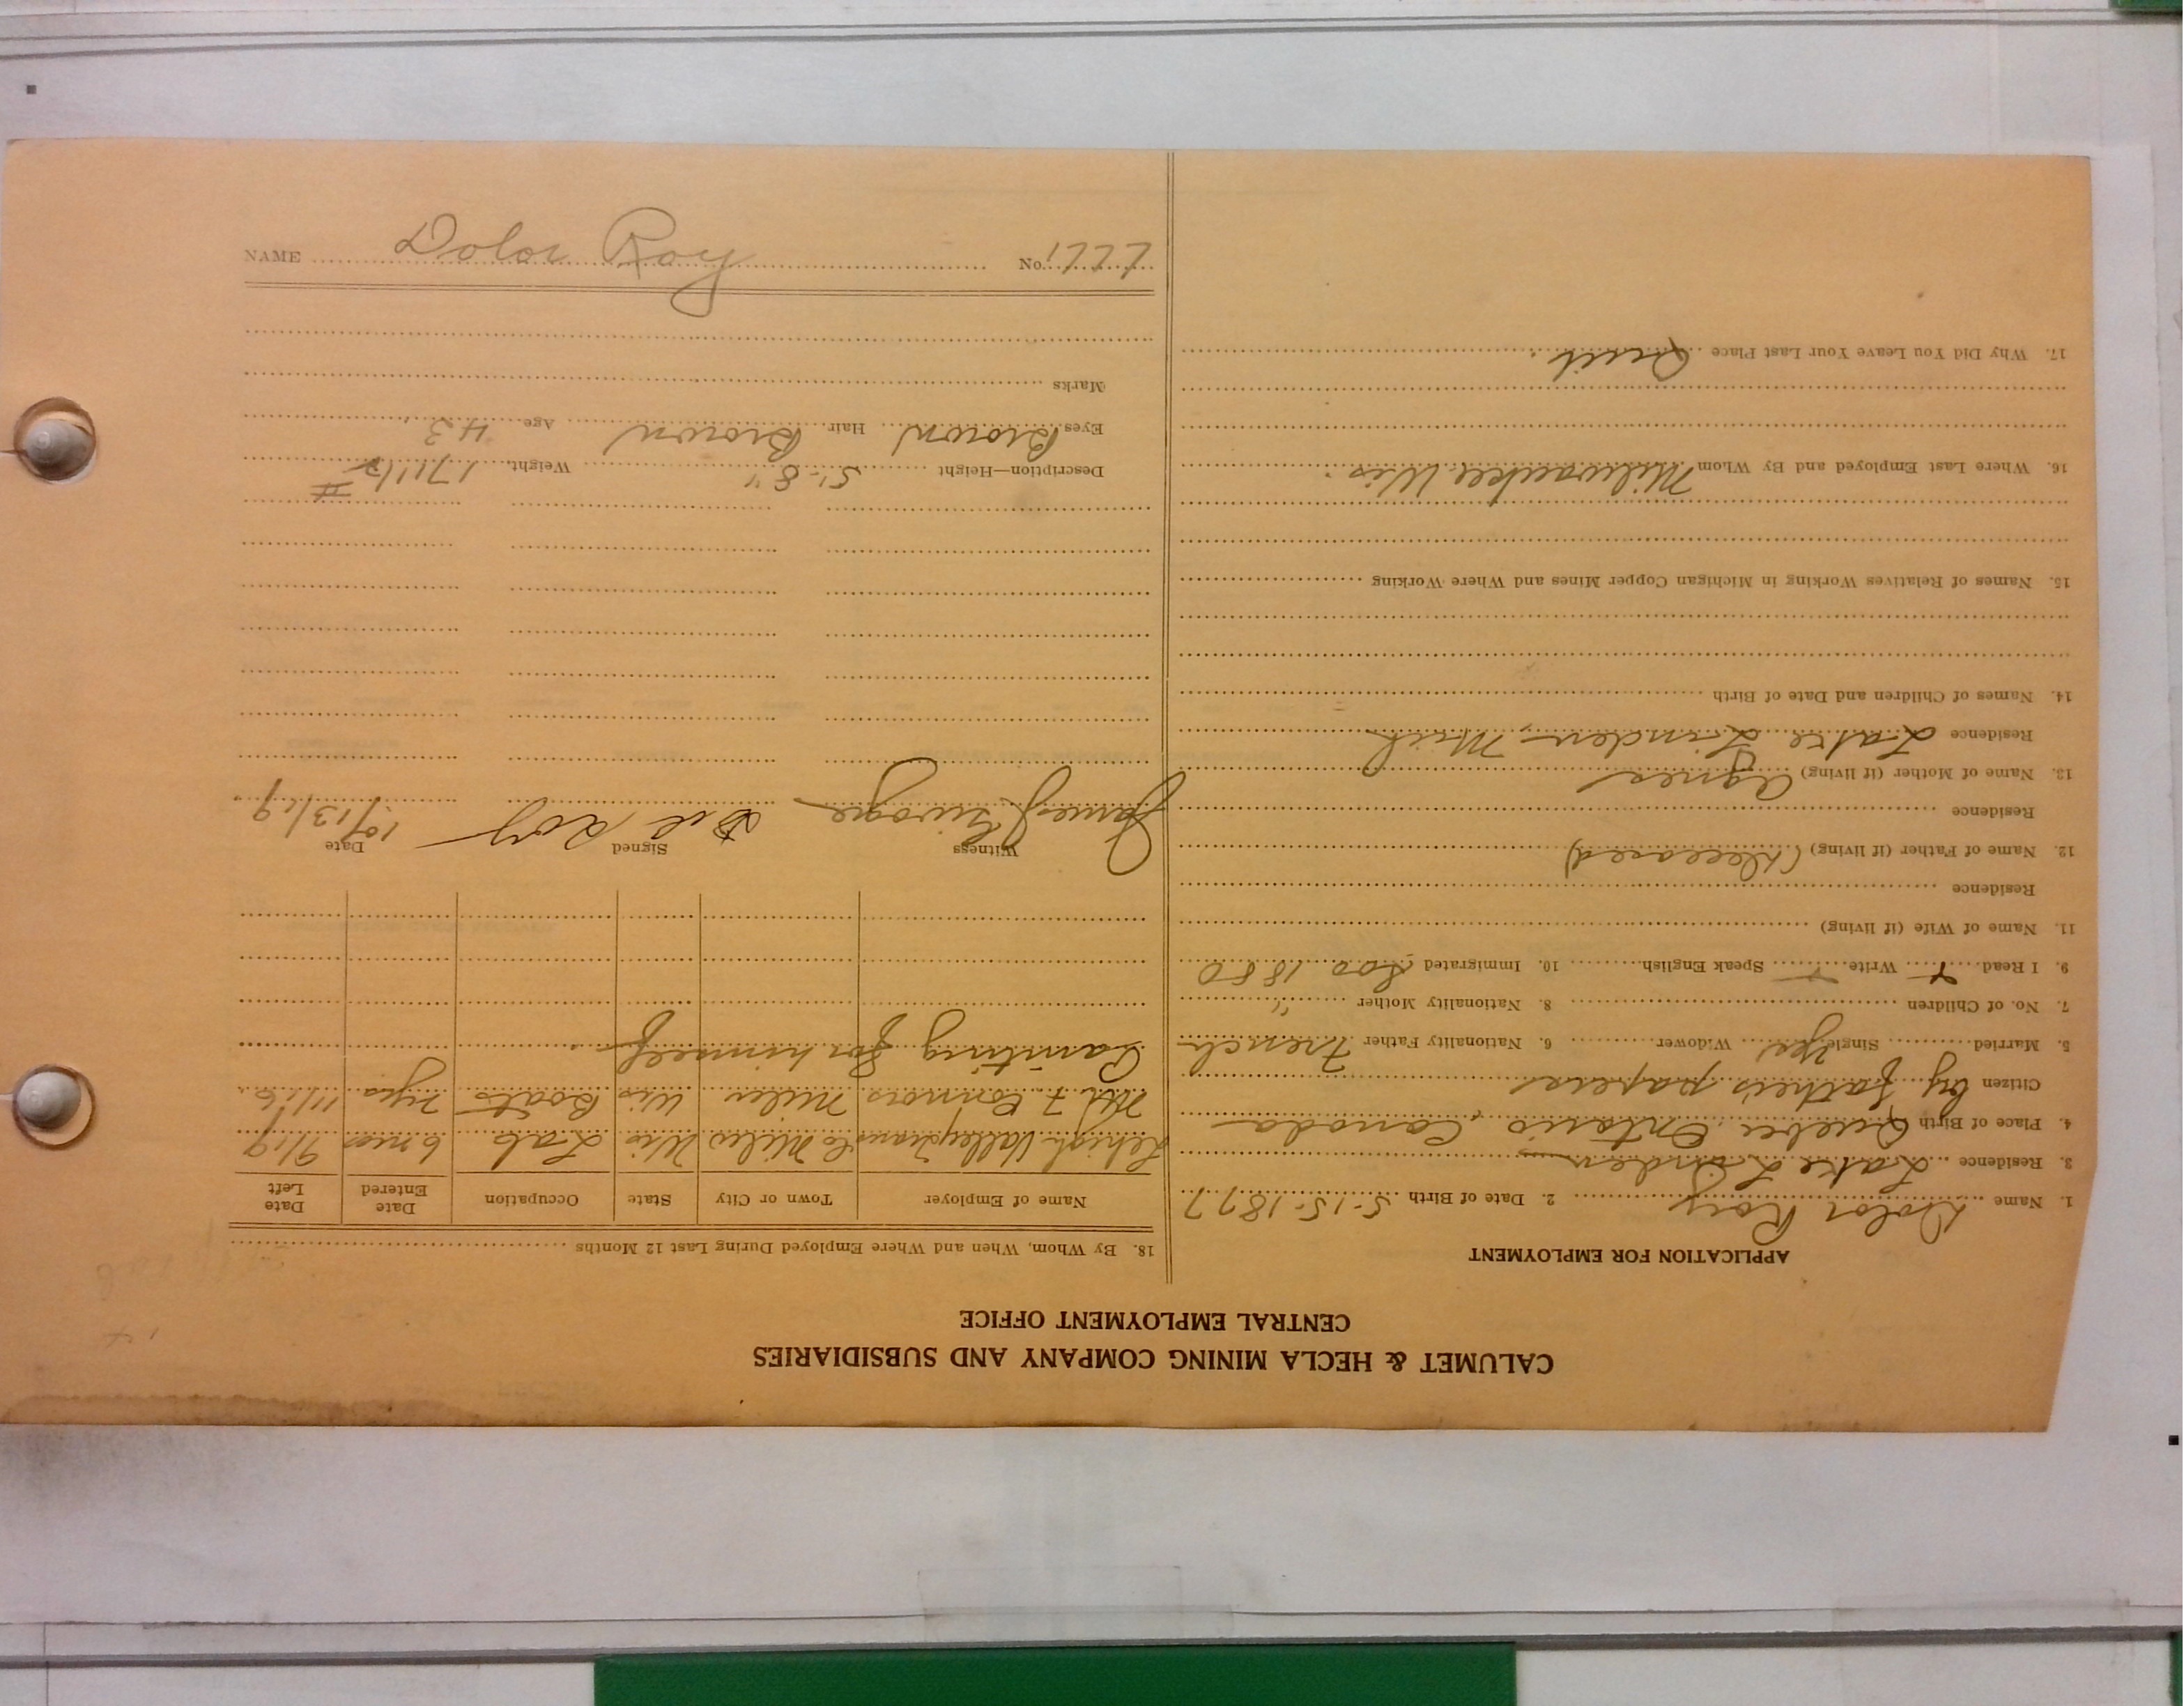 CALUMET & HECLA MINING COMPANY AND SUBSIDIARIES
CENTRAL EMPLOYMENT OFFICE
APPLICATION FOR EMPLOYMENT
1. Name Dolor Roy 2. Date of Birth 5-15-1877
3. Residence Lake Linden
4. Place of Birth Quebec Ontario, Canada
Citizen by father's papers
5. Married Single yes Widower 6. Nationality Father French
7. No. of Children 8. Nationality Mother "
9. I Read x Write x Speak English 10. Immigrated Soo 1880
11. Name of Wife (if living)
Residence
12. Name of Father (if living) (Deceased)
Residence
13. Name of Mother (if living) Agnes
Residence Lake Linden, Mich
14. Names of Children and Date of Birth
15. Names of Relatives Working in Michigan Copper Mines and Where Working
16. Where Last Employed and By Whom Milwaukee Wis.
17. Why Did You Leave Your Last Place Quit.
18. By Whom, When and Where Employed During Last 12 Months
Name of Employer Town or City State Occupation Date Entered Date Left
Lehigh Valley Co Milw Wis Lab 6 mos 9/19
F. Connors Milw Wis Boats 11/16
Painting for himself
Witness Signed Date
James Roy 10/13/19
Description—Height 5'-8" Weight 171 1/2 #
Eyes Brown Hair Brown Age 43
Marks
NAME Dolor Roy No. 1777